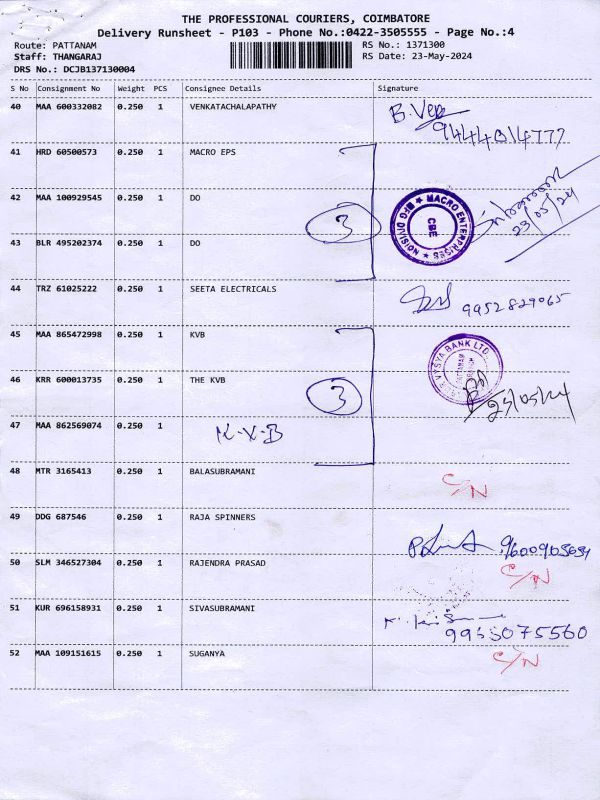 THE PROFESSIONAL COURIERS, COIMBATORE
Delivery Runsheet - P103 - Phone No.:0422-3505555 - Page No.:4
Route: PATTANAM RS No.: 1371300
Staff: THANGARAJ RS Date: 23-May-2024
DRS No.: DCJB137130004
S No Consignment No Weight PCS Consignee Details Signature
40 MAA 600332082 0.250 1 VENKATACHALAPATHY
9444014777
41 HRD 60500573 0.250 1 MACRO EPS
42 MAA 100929545 0.250 1 DO
3 MACRO ENTERPRISES MFG DIVISION CBE 23/05/24
43 BLR 495202374 0.250 1 DO
44 TRZ 61025222 0.250 1 SEETA ELECTRICALS
9952829065
45 MAA 865472998 0.250 1 KVB
VYSYA BANK LTD.
46 KRR 600013735 0.250 1 THE KVB
3
47 MAA 862569074 0.250 1
K-V-B
48 MTR 3165413 0.250 1 BALASUBRAMANI
C/N
49 DDG 687546 0.250 1 RAJA SPINNERS
50 SLM 346527304 0.250 1 RAJENDRA PRASAD
C/N
51 KUR 696158931 0.250 1 SIVASUBRAMANI
52 MAA 109151615 0.250 1 SUGANYA
C/N